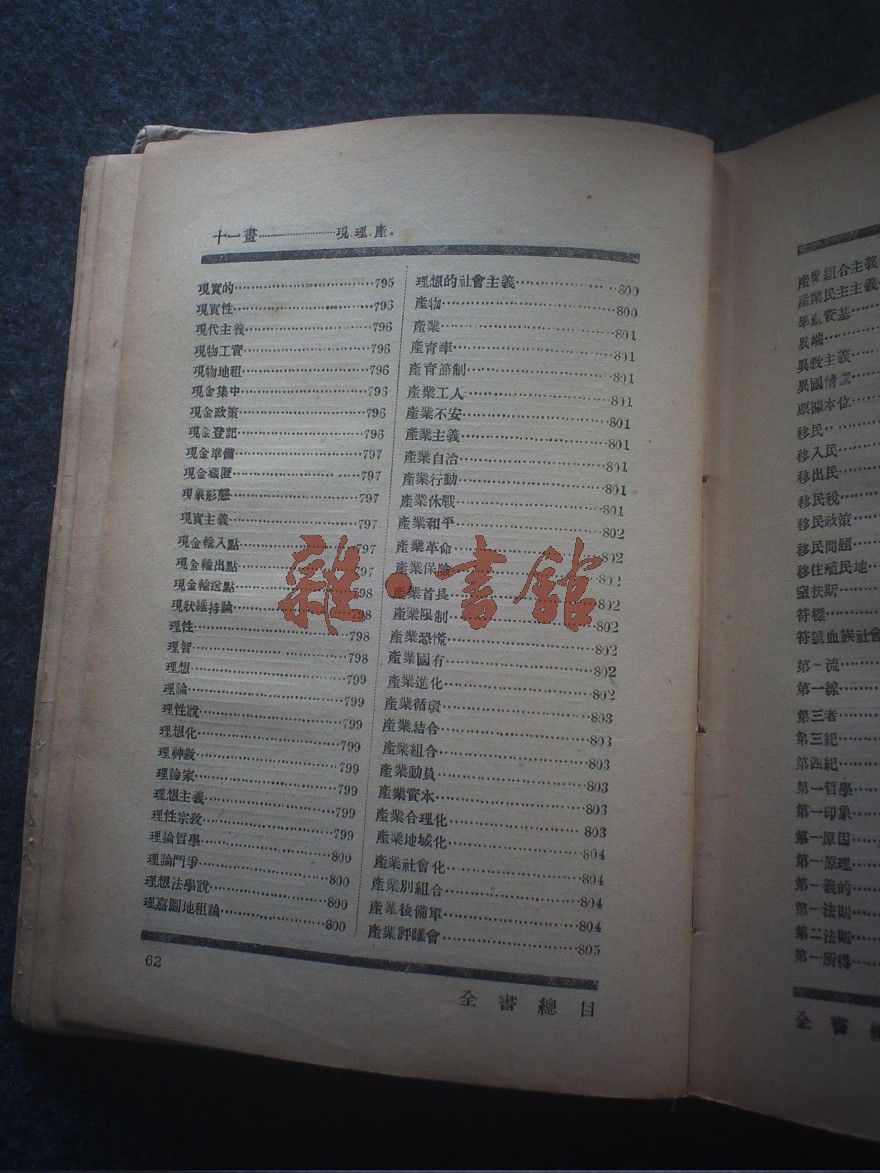 十一畫………………現.理.產。
現實的………………795
現實性………………796
現代主義………………796
現物工資………………796
現物地租………………796
現金集中………………796
現金政策………………796
現金登記………………796
現金準備………………797
現金藏匿………………797
現象形態………………797
現實主義………………797
現金輸入點………………797
現金輸出點………………797
現金輸送點………………798
現狀維持論………………798
理性………………798
理智………………798
理想………………799
理論………………799
理性說………………799
理想化………………799
理神教………………799
理論家………………799
理想主義………………799
理性宗教………………799
理論哲學………………800
理論鬥爭………………800
理想法學說………………800
理嘉圖地租論………………800
理想的社會主義………………800
產物………………800
產業………………801
產育率………………801
產育節制………………801
產業工人………………801
產業不安………………801
產業主義………………801
產業自治………………801
產業行動………………801
產業休戰………………801
產業和平………………802
產業革命………………802
產業保險………………802
產業首長………………802
產業限制………………802
產業恐慌………………802
產業國有………………802
產業進化………………802
產業循環………………803
產業結合………………803
產業組合………………803
產業動員………………803
產業資本………………803
產業合理化………………803
產業地域化………………804
產業社會化………………804
產業別組合………………804
產業後備軍………………804
產業評議會………………805
62
全書總目
雜·書館
產業組合主義
產業民主主義
畢亂資基
異端
異教主義
異國情調
票據本位
移民
移入民
移出民
移民稅
移民政策
移民問題
移住殖民地
窒扶斯
符標
符號血族社會
第一流
第一線
第三者
第三紀
第四紀
第一哲學
第一印象
第一原因
第一原理
第一義的
第一法則
第二法則
第一所得
全書